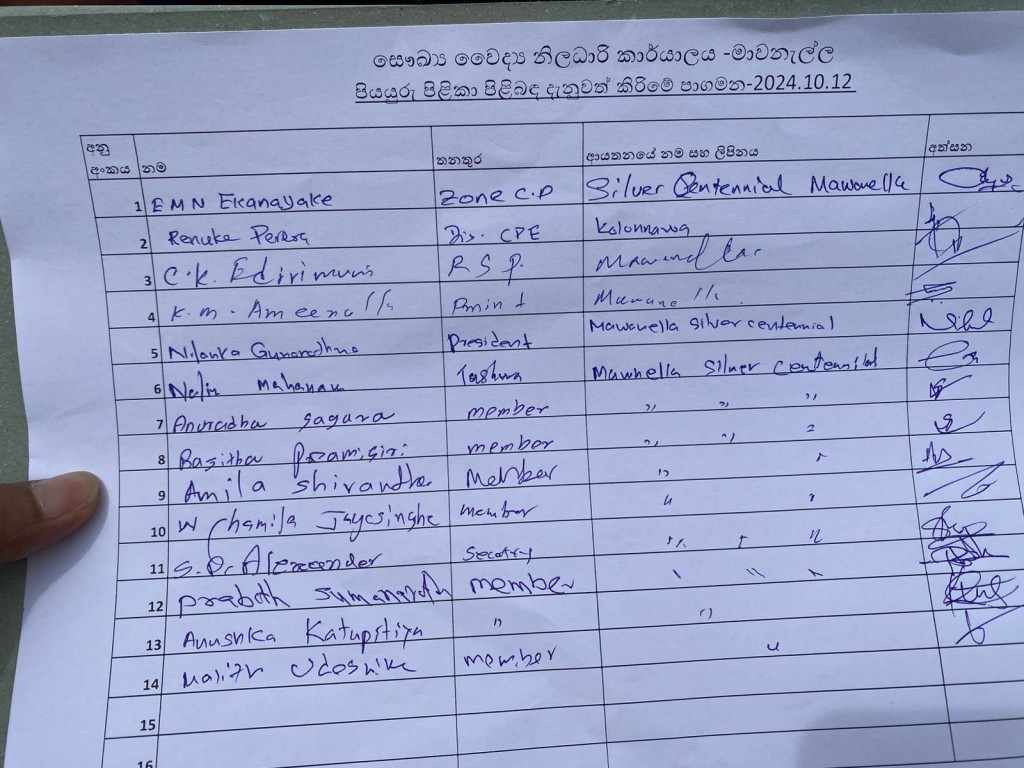 සෞඛ්‍ය වෛද්‍ය නිලධාරි කාර්යාලය -මාවනැල්ල
පියයුරු පිළිකා පිළිබඳ දැනුවත් කිරිමේ පාගමන-2024.10.12
අනු අංකය නම තනතුර ආයතනයේ නම සහ ලිපිනය අත්සන
1 E M N Ekanayake Zone C.P Silver Centennial Mawanella
2 Renuka Perera Dis. CPE Kolonnawa
3 C.K. R S P.
4 K.m. Ameenalla
5 Nilanka Gunarathna President Mawanella Silver centennial
6 Mawnella Silver centennial
7 Anuradha Sagara member " " "
8 Rasitha Premisiri member " " "
9 Amila Shivantha Member " "
10 W Chamila Jayesinghe member " "
11 S.P. Alexander Secatry " " "
12 Praboth member " " "
13 Anushka Katupitiya " "
14 member "
15
16